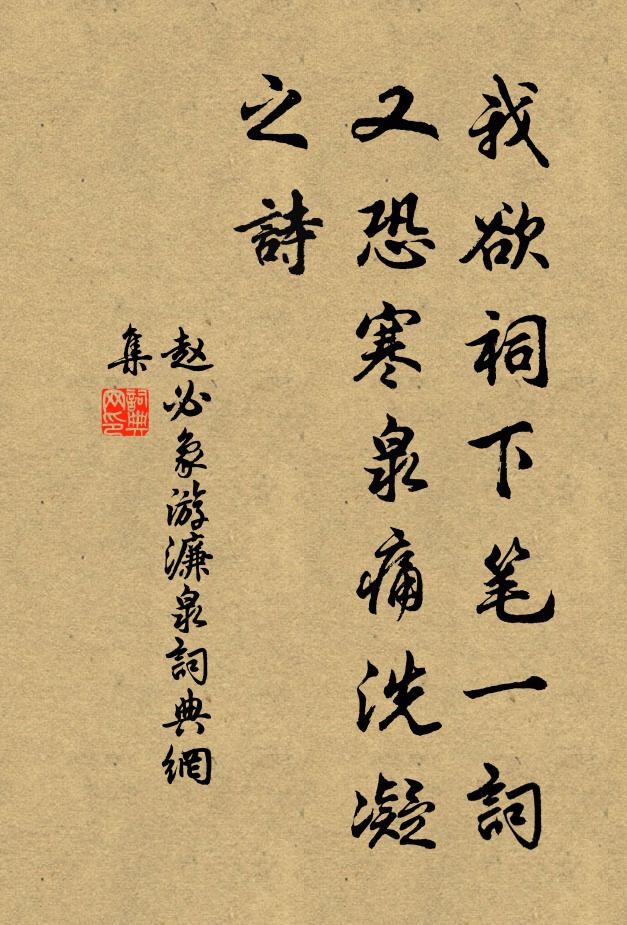 我欲祠下笔一詞
又恐寒泉痛洗凝
之詩
赵必象游濂泉詞典網
集
詞典
网印